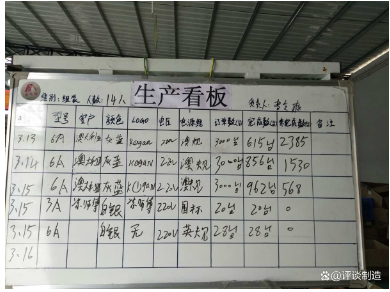 生产看板
组别:组装 人数:14人 负责人:
型号 客户 颜色 LOGO 电压 电源线 订单数(台) 完成数(台) 未完成数(台) 备注
3.13 6A 灰蓝 Kogan 220V 澳规 3000台 615台 2385
3.14 6A 灰蓝 KOGAN 220V 澳规 3000台 856台 1530
3.15 6A 灰蓝 220V 澳规 3000台 962台 568
3.15 3A 白银 220V 国标 20台 20台 0
3.15 6A 白银 无 220V 英规 28台 28台 0
3.16
@评谈制造